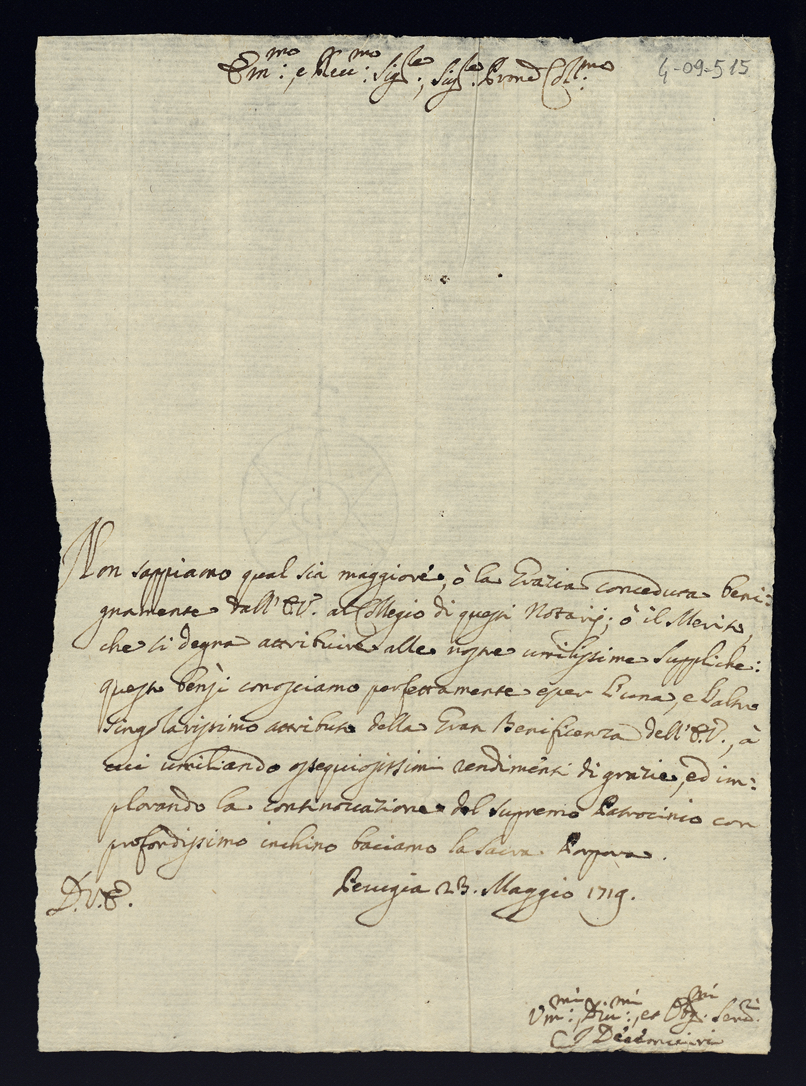 Em:mo, e Reu:mo Sig:re, Sig:re Prone Coll:mo
4-09-515
Non sappiamo qual sia maggiore, ò la Grazia conceduta beni:
gnamente dall'E.V. al Collegio di questi Notarij; ò il Merito,
che si degna attribuire alle nostre umilissime suppliche:
questo bensì conosciamo perfettamente esser l'una, e l'altro
singolarissimo attributo della Gran Beneficenza dell'E.V., à
cui umiliando ossequiosissimi rendimenti di grazie, ed im:
plorando la continouazione del supremo Patrocinio con
profondissimo inchino baciamo la Sacra Porpora.
Perugia 23. Maggio 1719.
D.V.E.
Vm:mi, Diu:mi, et Obg:mi Seru:ri
I Decemviri